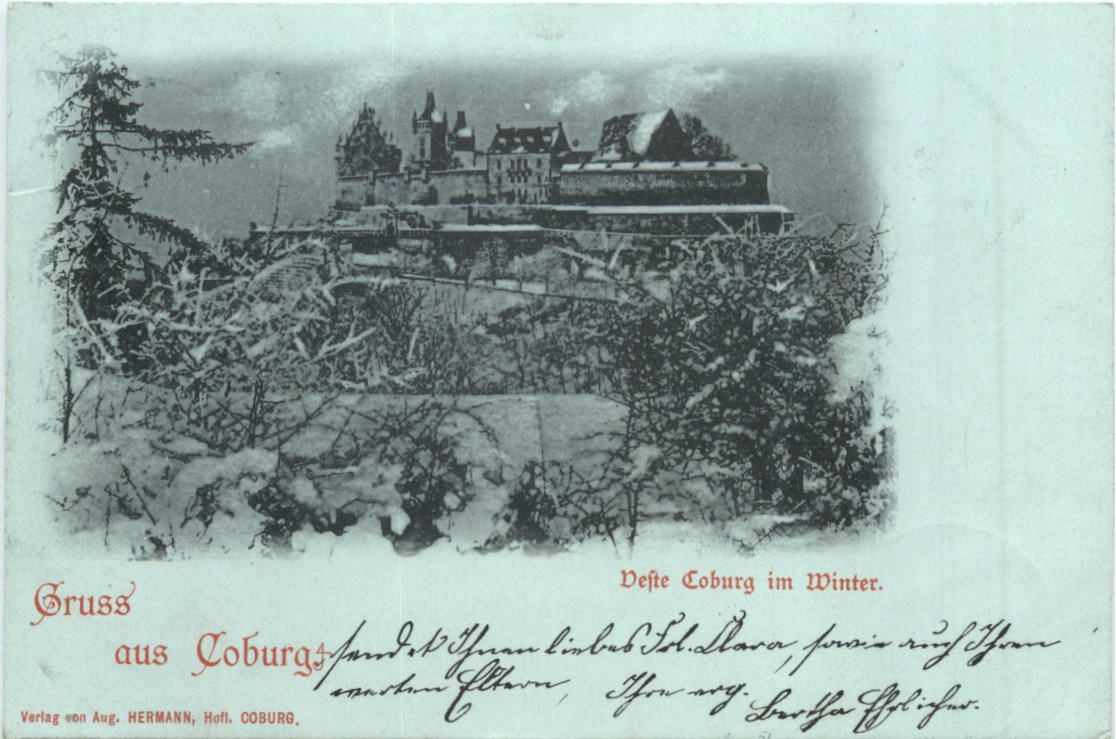 Veſte Coburg im Winter.
Gruss
aus Coburg
sendet Ihnen liebes Frl. Clara, sowie auch Ihren
werten Eltern, Ihre erg.
Bertha Ehrlicher.
Verlag von Aug. HERMANN, Hofl. COBURG.